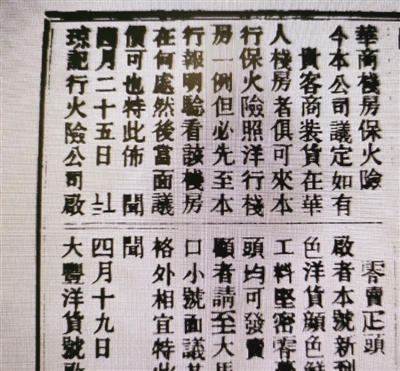 華商棧房保火險
今本公司議定如有
貴客商裝貨在華
人棧房者俱可來本
行保火險照洋行棧
房一例但必先至本
行報明騐看該棧房
在何處然後當面議
價可也特此佈 聞
四月二十五日
瓊記行火險公司啟
零賣疋頭
啟者本號新到
色洋貨顏色鮮
工料堅密零
頭均可發賣
顧者請至大馬
口小號面議其
格外相宜特此
聞
四月十九日
大豐洋貨號啟